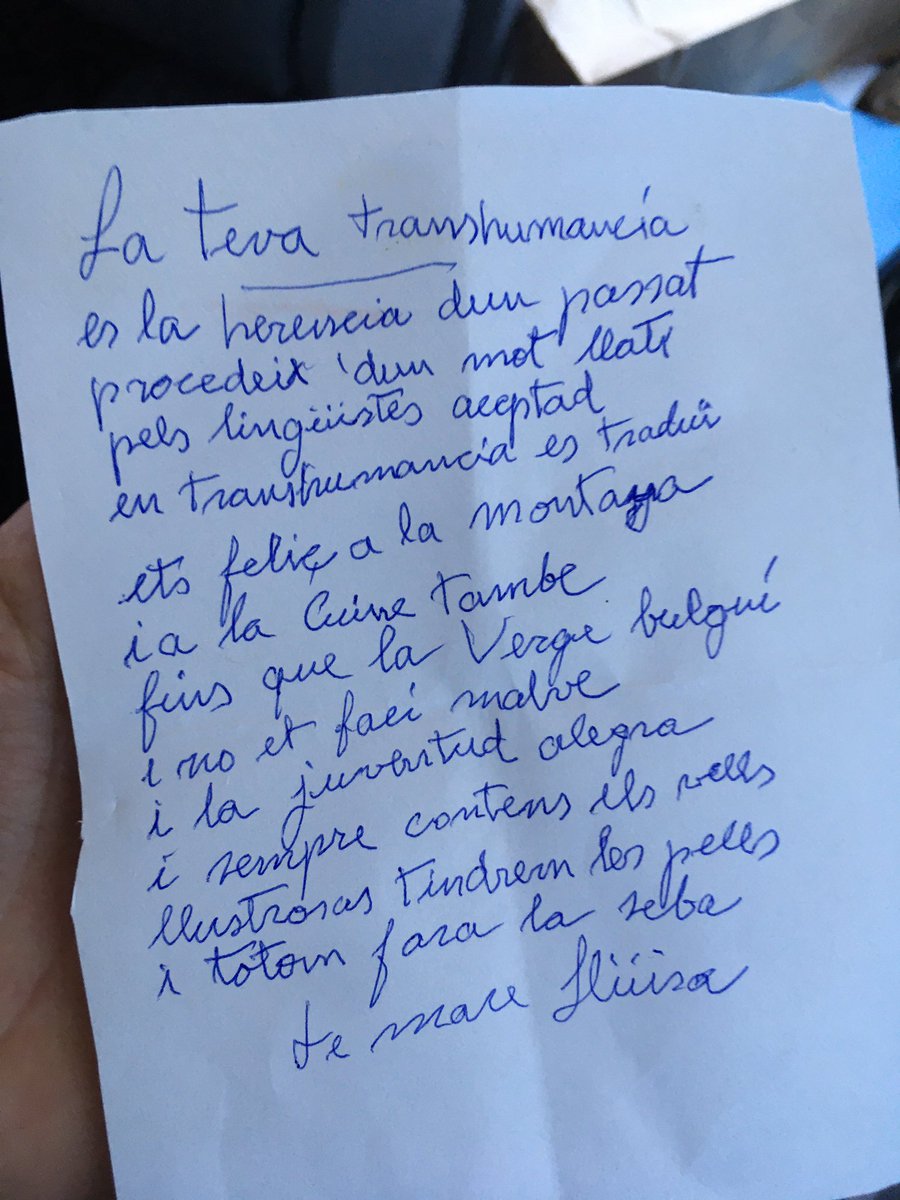 La teva transhumancía
es la herencia dun passat
procedeix 'dun mot llatí
pels lingüistes aceptad
en transhumancía es traduï
ets feliç a la montaya
i a la Cuine tambe
fins que la Verge bulgué
i no et faci malve
i la juventud alegra
i sempre contens els vells
llustrosas tindrem les pells
i tótom fara la seba
te mare Llüisa